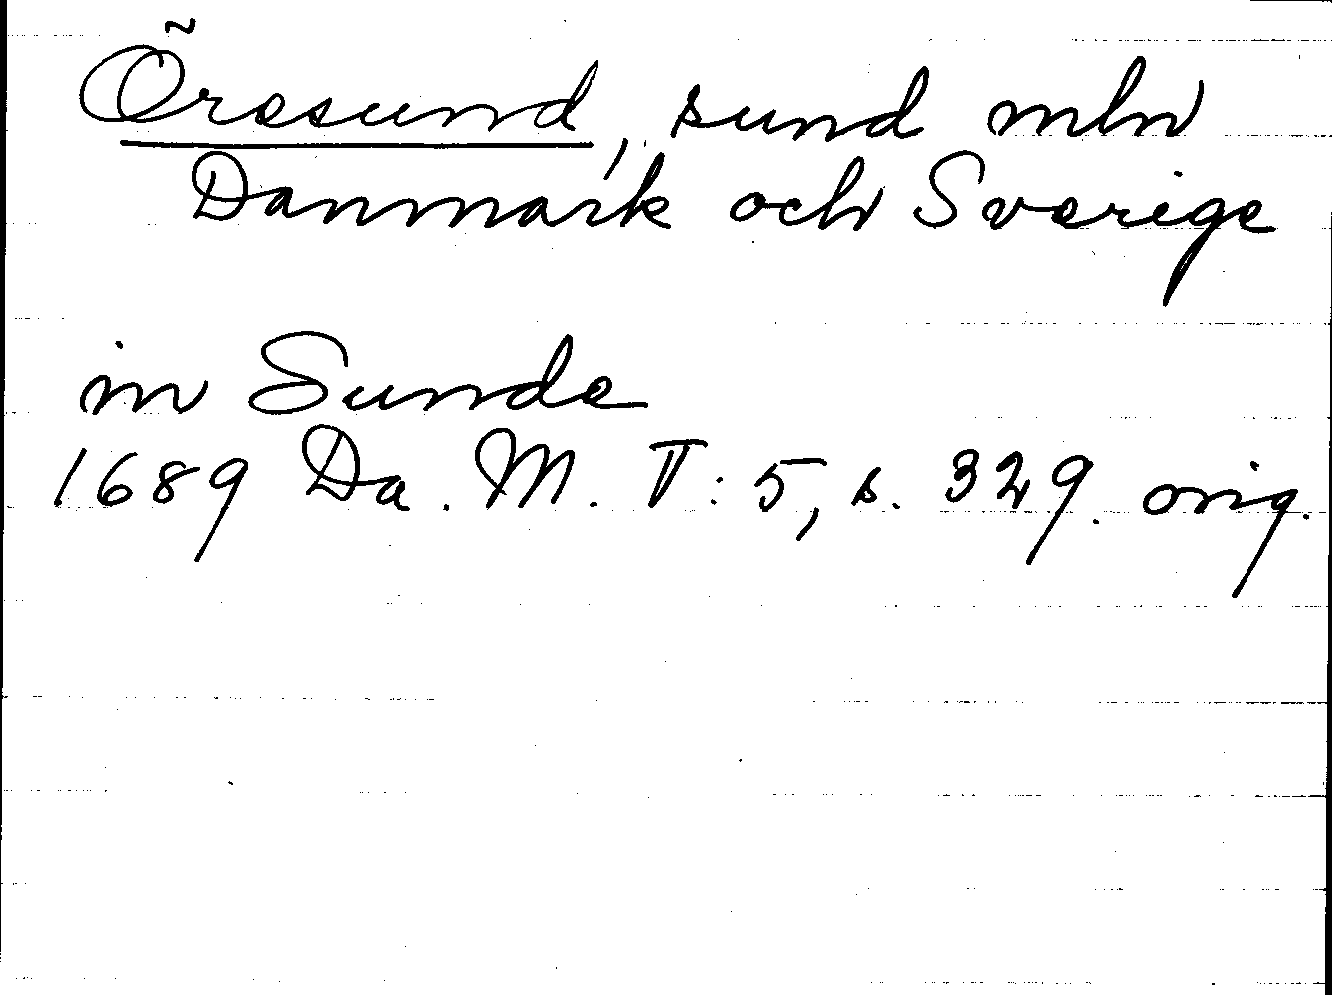 Öresund, sund mln
Danmark och Sverige
in Sunde
1689 Da. M. T: 5, s. 329. orig.